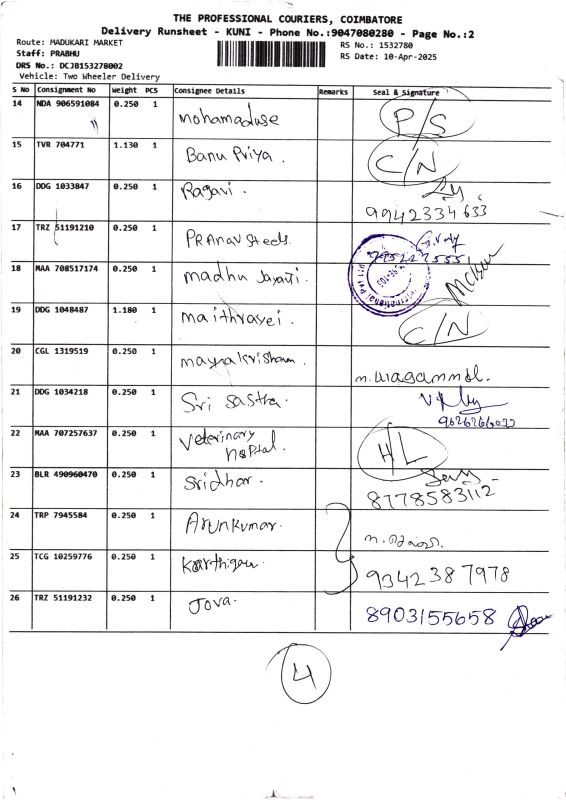 THE PROFESSIONAL COURIERS, COIMBATORE
Delivery Runsheet - KUNI - Phone No.:9047080280 - Page No.:2
Route: MADUKARI MARKET
Staff: PRABHU
DRS No.: DCJB153278002
Vehicle: Two Wheeler Delivery
RS No.: 1532780
RS Date: 10-Apr-2025
S No Consignment No Weight PCS Consignee Details Remarks Seal & Signature
14 NDA 906591084 0.250 1 mohamaduse P/S
15 TVR 704771 1.130 1 Banu Priya. C/N
16 DDG 1033847 0.250 1 Ragavi. 9942334633
17 TRZ 51191210 0.250 1 PRAnav steels.
18 MAA 708517174 0.250 1 madhu Jayanti.
19 DDG 1048487 1.180 1 maithrayei. C/N
20 CGL 1319519 0.250 1
21 DDG 1034218 0.250 1 Sri Sastha.
22 MAA 707257637 0.250 1 Veterinary
Hospital. H/L
23 BLR 490960470 0.250 1 Sridhar. 8778583112
24 TRP 7945584 0.250 1 Arunkumar.
25 TCG 10259776 0.250 1 9342387978
26 TRZ 51191232 0.250 1 Jova. 8903155658
4